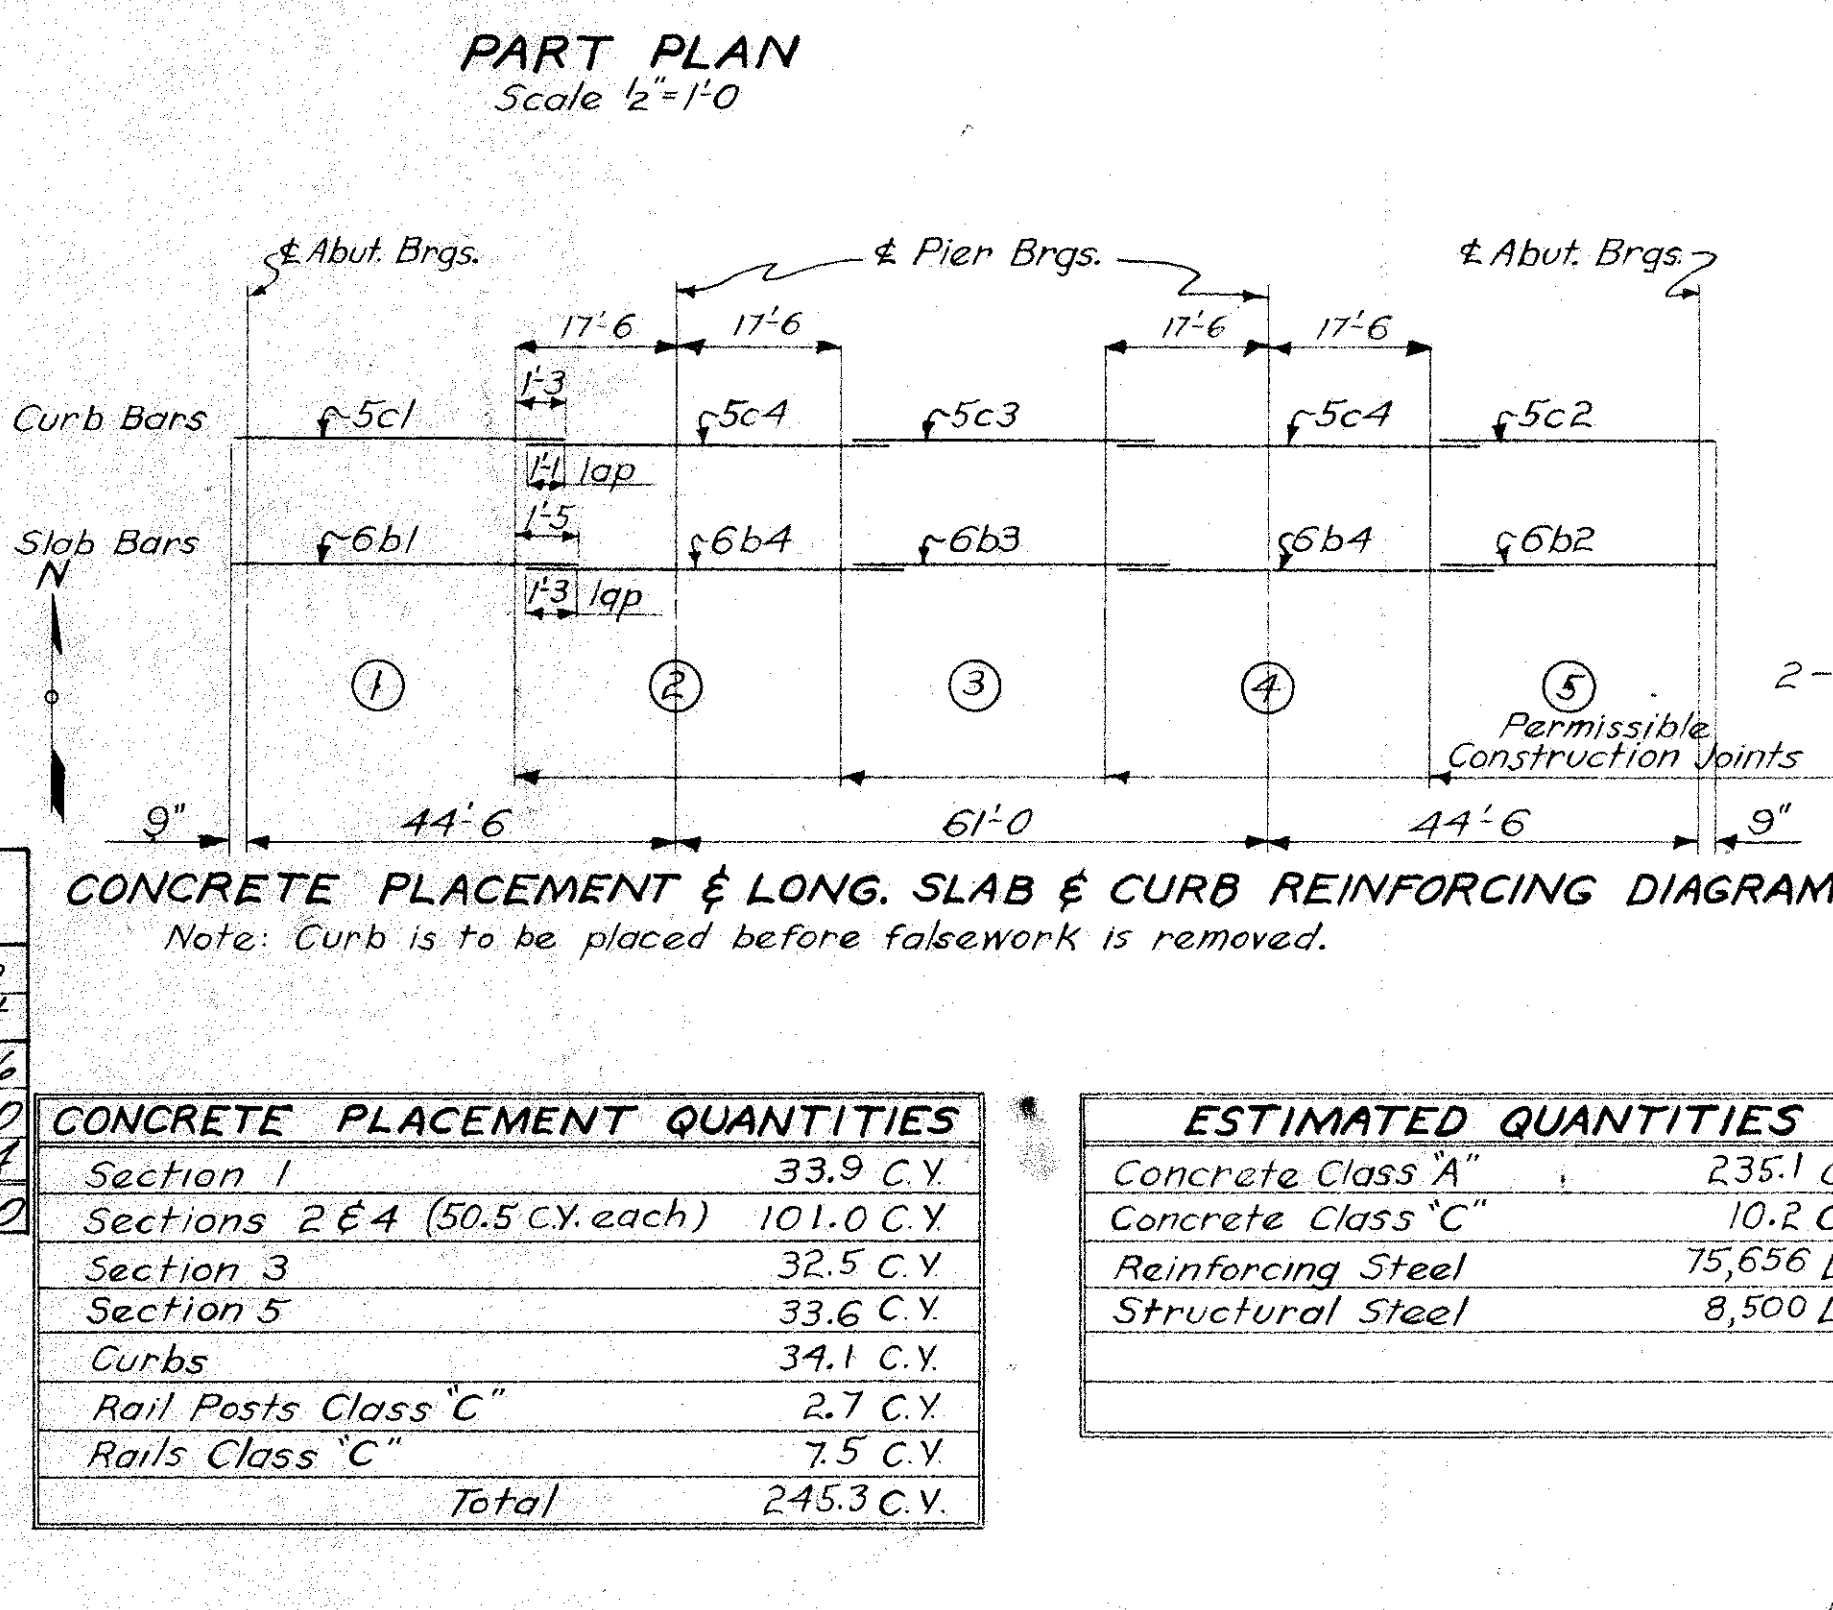 PART PLAN
Scale ½"=1'-0
℄ Abut. Brgs.
℄ Pier Brgs.
℄ Abut. Brgs.
17'-6 17'-6 17'-6 17'-6
1'-3
Curb Bars 5c1 5c4 5c3 5c4 5c2
1'-1 lap
1'-5
Slab Bars 6b1 6b4 6b3 6b4 6b2
N
1'-3 lap
1 2 3 4 5 2-
Permissible
Construction Joints
9" 44'-6 61'-0 44'-6 9"
CONCRETE PLACEMENT & LONG. SLAB & CURB REINFORCING DIAGRAM
Note: Curb is to be placed before falsework is removed.
CONCRETE PLACEMENT QUANTITIES
Section 1 33.9 C.Y.
Sections 2 & 4 (50.5 C.Y. each) 101.0 C.Y.
Section 3 32.5 C.Y.
Section 5 33.6 C.Y.
Curbs 34.1 C.Y.
Rail Posts Class "C" 2.7 C.Y.
Rails Class "C" 7.5 C.Y.
Total 245.3 C.Y.
ESTIMATED QUANTITIES
Concrete Class "A" 235.1 C
Concrete Class "C" 10.2 C
Reinforcing Steel 75,656 L
Structural Steel 8,500 L